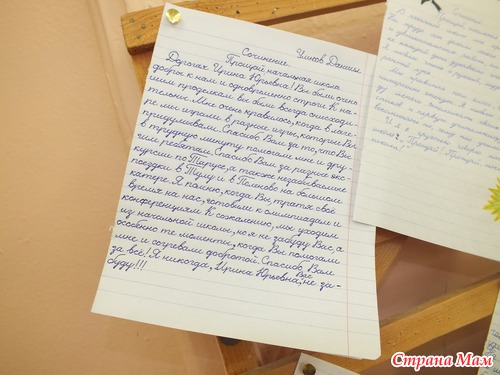 Сочинение. Чинов Данила
Прощай начальная школа
Дорогая Ирина Юрьевна! Вы были очень
добры к нам и одновременно строги. К на-
шим проделкам вы были всегда снисходи-
тельны. Мне очень нравилось, когда в лаге-
ре мы играли в разные игры, которые Вы
придумывали. Спасибо Вам за то, что Вы
в трудную минуту помогали мне и дру-
гим ребятам. Спасибо Вам за разные экс-
курсии по Тарусе, а также незабываемые
поездки в Тулу и в Поленово на большом
катере. Я помню, когда Вы, тратя своё
время на нас, готовили к олимпиадам и
конференциям. К сожалению, мы уходим
из начальной школы, но я не забуду Вас, а
особенно те моменты, когда Вы помогали
мне и согревали добротой. Спасибо Вам
за всё! Я никогда, Ирина Юрьевна, Вас не за-
буду!!!
Страна Мам